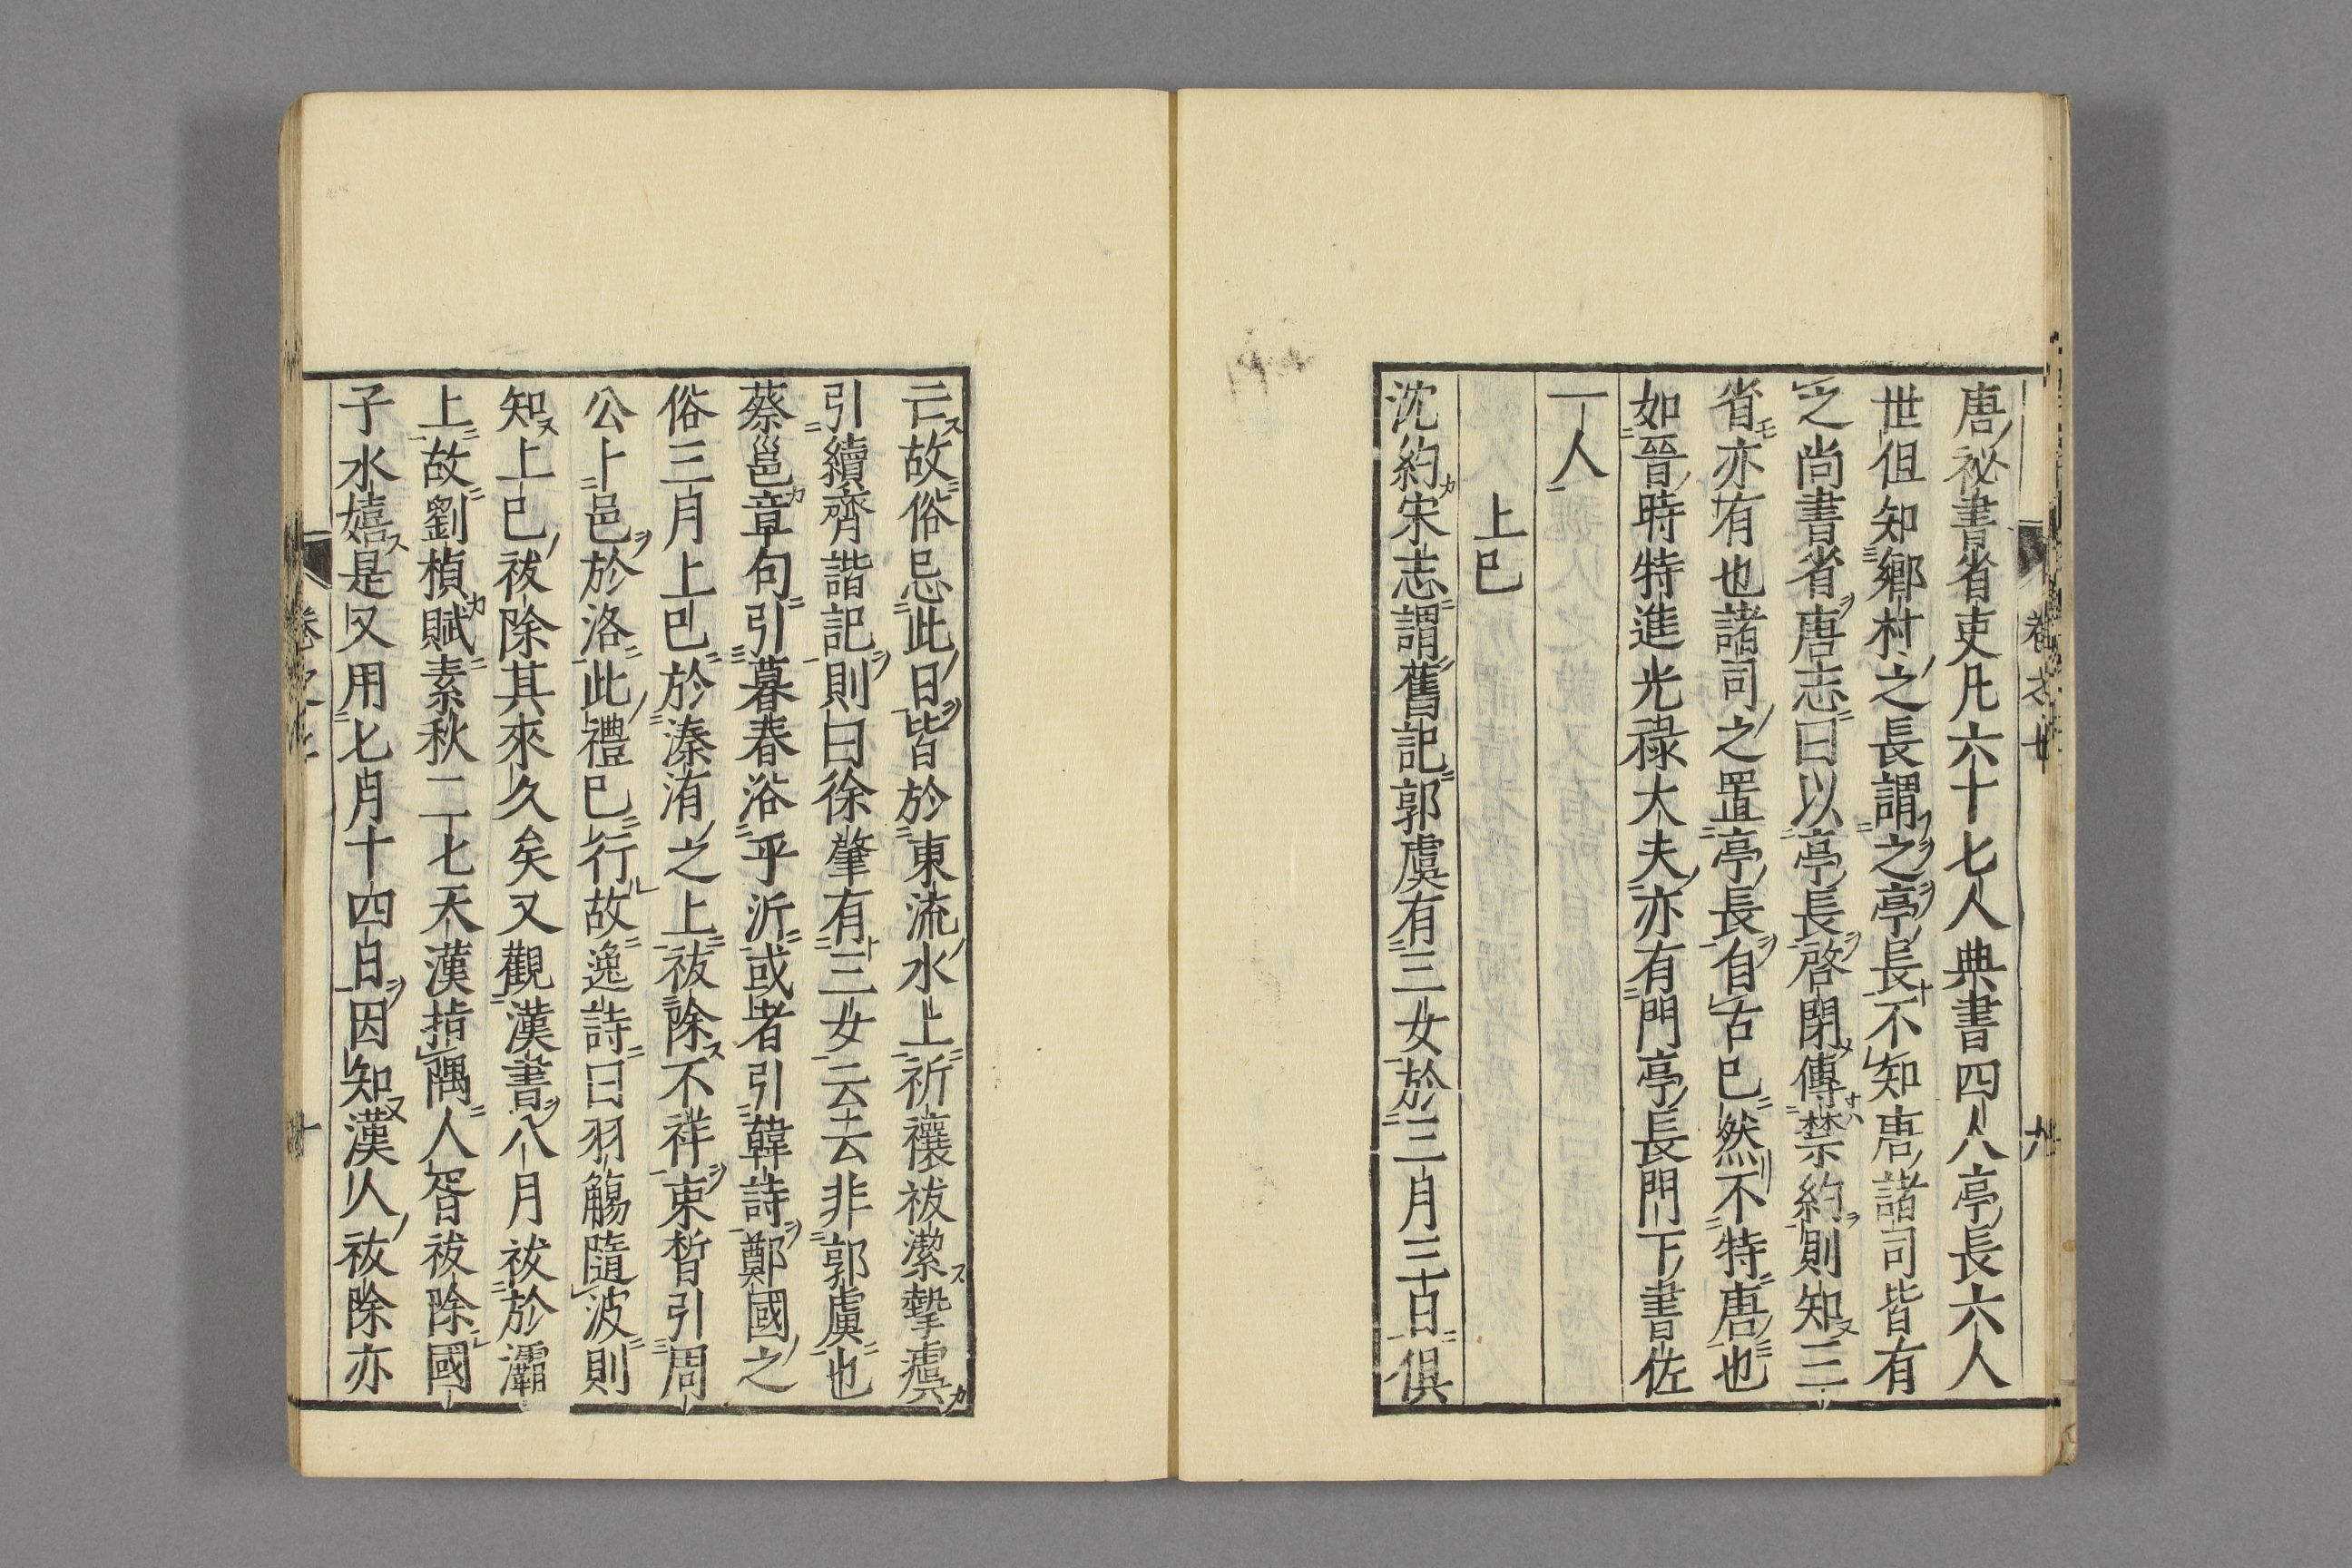 唐祕書省吏凡六十七人典書四人亭長六人
世但知鄉村之長謂之亭長不知唐諸司皆有
之尚書省唐志曰以亭長啓閉傳禁約則知三
省亦有也諸司之置亭長自古已然不特唐也
如晉時特進光祿大夫亦有門亭長門下書佐
一人
上巳
沈約宋志謂舊記郭虞有三女於三月三日俱
亡故俗忌此日皆於東流水上祈禳祓潔摯虞
引續齊諧記則曰徐肇有三女云云非郭虞也
蔡邕章句引暮春浴乎沂或者引韓詩鄭國之
俗三月上巳於溱洧之上祓除不祥束晳引周
公卜邑於洛此禮已行故逸詩曰羽觴隨波則
知上巳祓除其來久矣又觀漢書八月祓於灞
上故劉楨賦素秋二七天漢指隅人胥祓除國
子水嬉是又用七月十四日因知漢人祓除亦